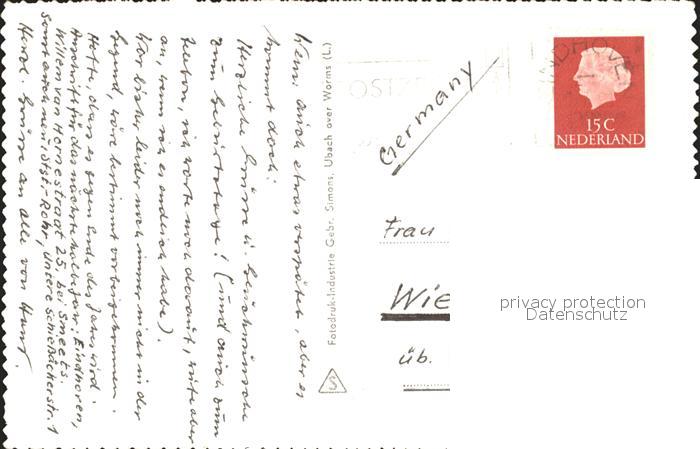 Wenn auch etwas verspätet, aber es
kommt doch!
Herzliche Grüsse u. Glückwünsche
zum Geburtstage! (und auch zum
, ich warte noch darauf, rufe aber
an, wenn ich es endlich habe).
War bisher leider noch immer nicht in der
Gegend, wäre bestimmt vorbeigekommen.
Hoffe, dass es gegen Ende des Jahres wird.
Anschrift für das nächste halbe Jahr: Eindhoven,
Willem van Hornestraat 25, bei Smeets.
Sonst auch neu: Rohr, Untere Schießäckerstr. 1
Herzl. Grüsse an alle von Hans.
Fotodruk-Industrie Gebr. Simons, Ubach over Worms (L.)
S
POSTZ
NDHOVE
15 C
NEDERLAND
Germany
Frau
Wie
üb.
privacy protection
Datenschutz